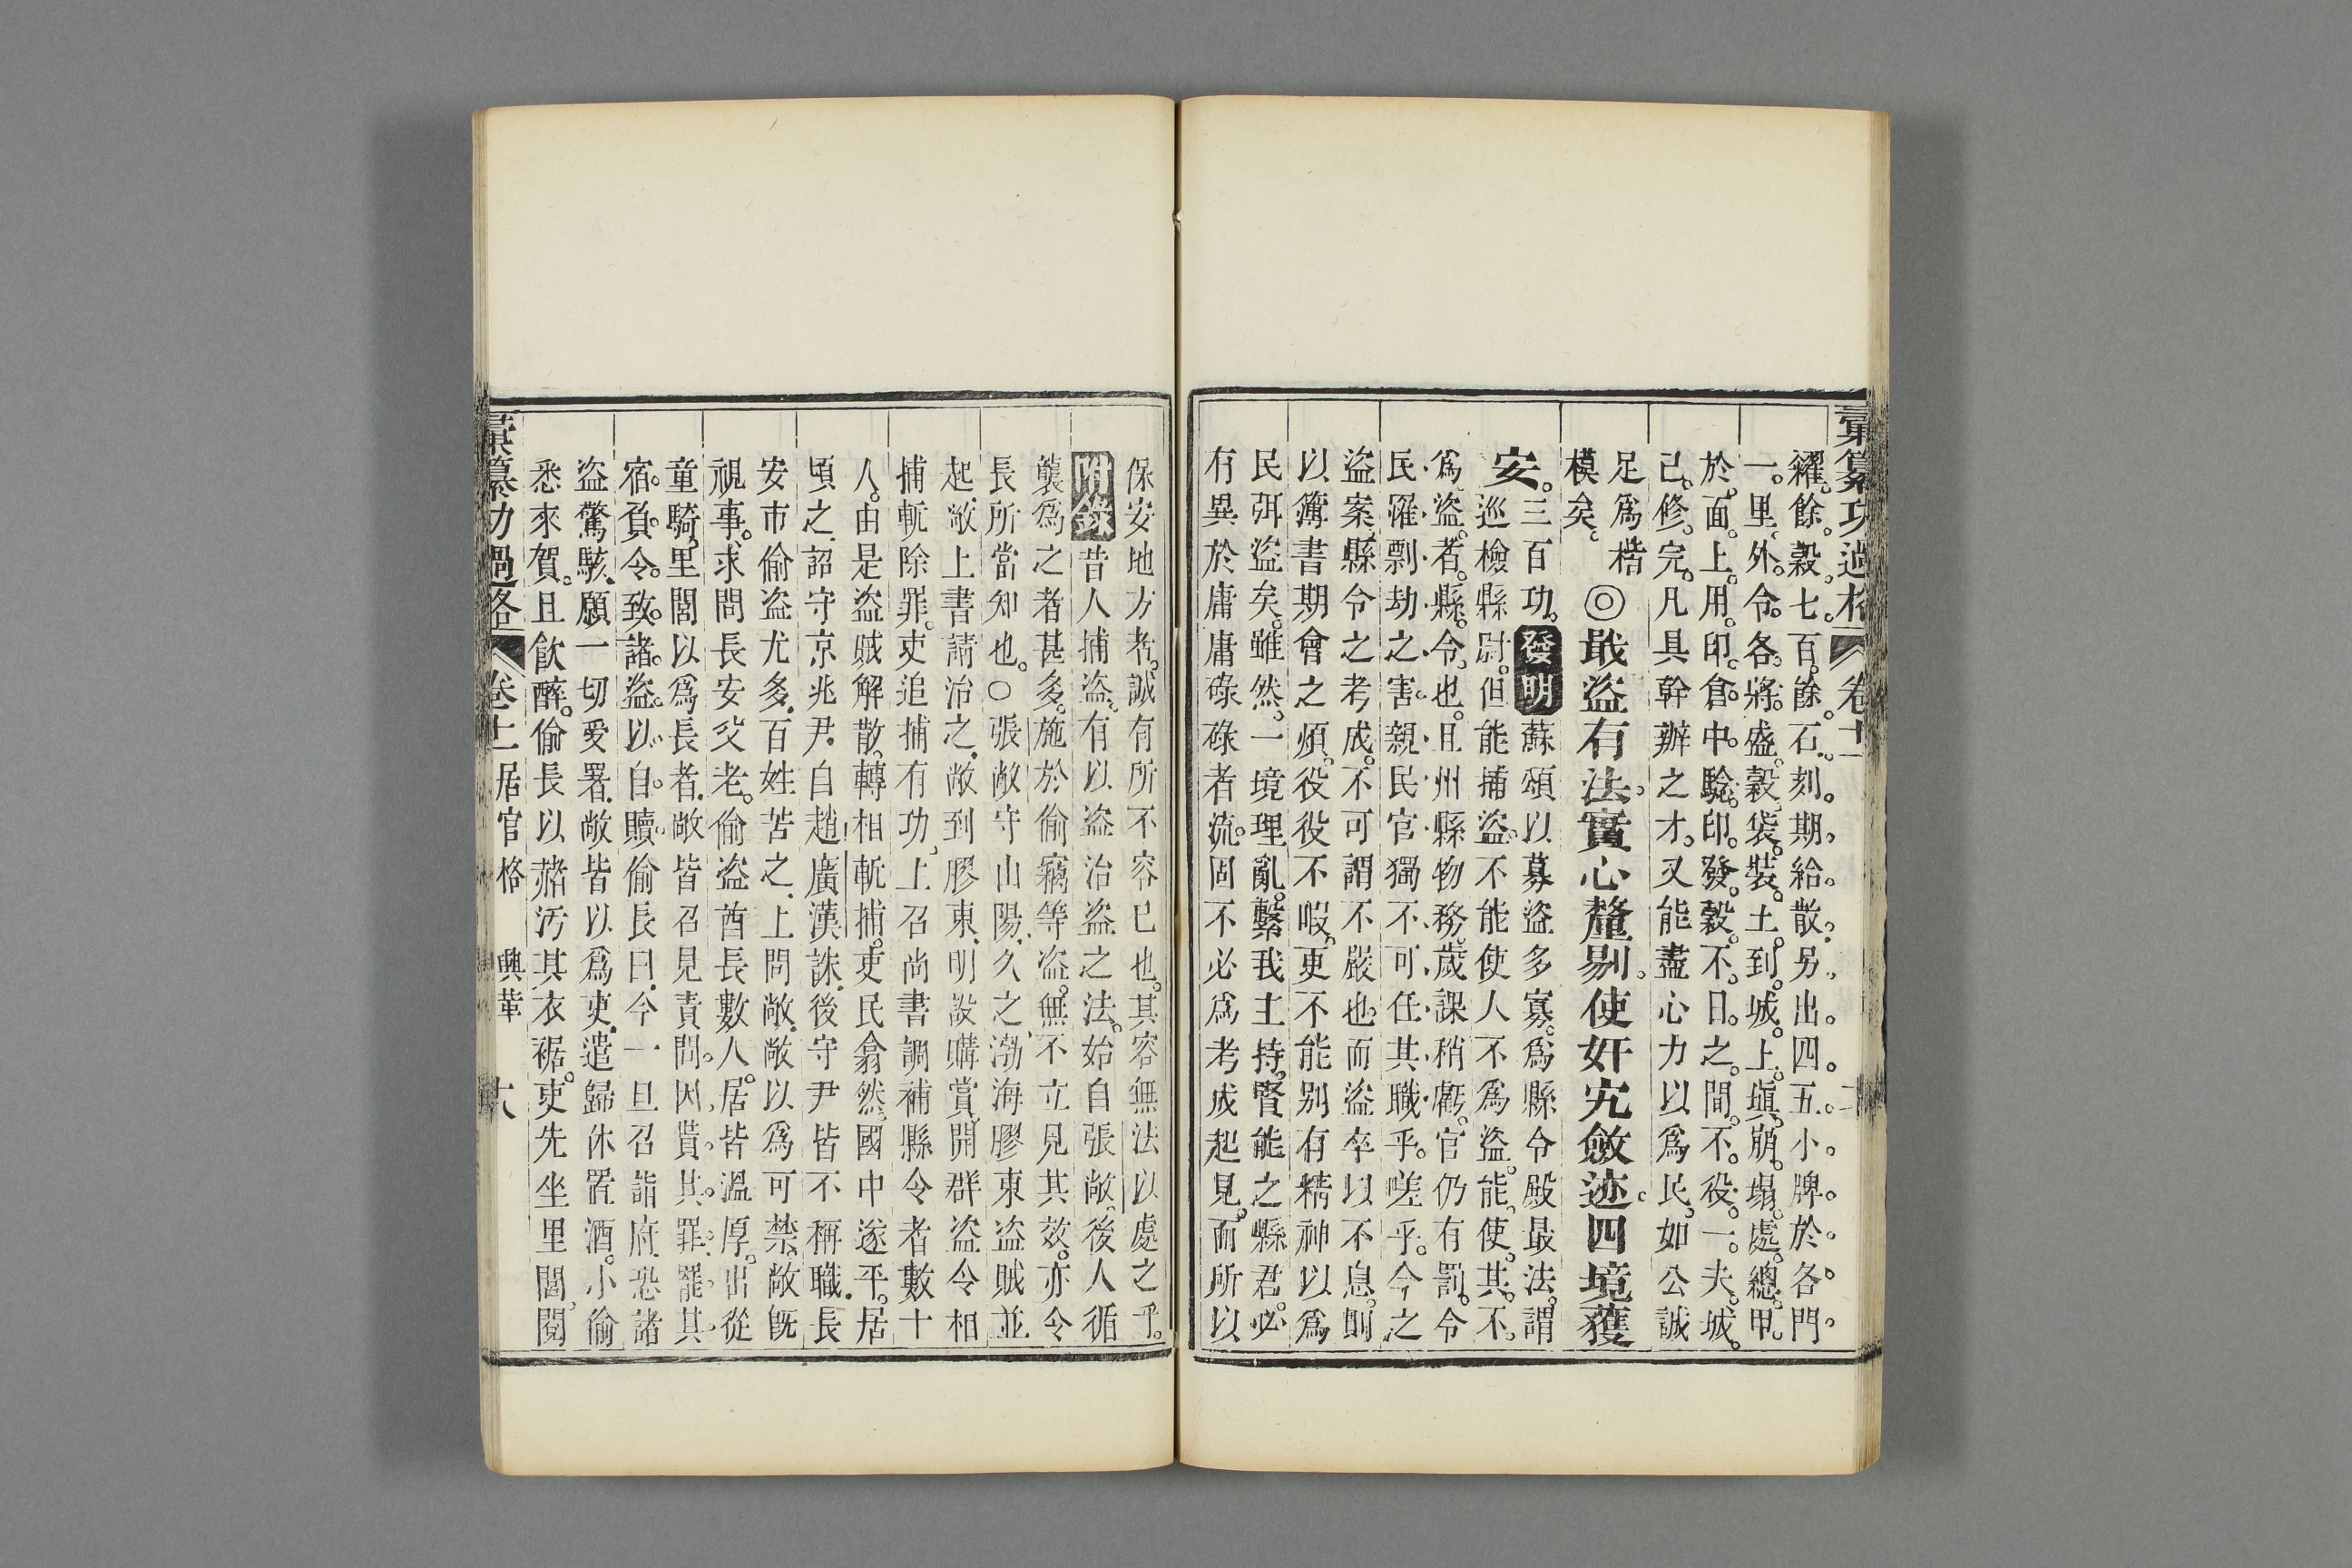 彙纂功過格 卷十一
糴。餘。穀。七。百。餘。石。刻。期。給。散。另。出。四。五。小。牌。於。各。門。
一。里。外。令。各。將。盛。穀。袋。裝。土。到。城。上。塡。崩。塌。處。總。甲。
於。面。上。用。印。倉。中。驗。印。發。穀。不。日。之。間。不。役。一。夫。城。
已。修。完。凡具幹辦之才。又能盡心力以爲民。如公誠
足爲楷
模矣。
◎戢盜有法。實心釐剔。使奸宄斂迹。四境獲
安。三百功。發明蘇頌以募盜多寡。爲縣令殿最法。謂
巡檢縣尉。但能捕盜。不能使人不爲盜。能。使。其。不。
爲。盜。者。縣。令。也。且州縣物務。歲課稍虧。官仍有罰。今
民罹剽劫之害。親民官獨不可任其職乎。嗟乎。今之
盜案。縣令之考成。不可謂不嚴也。而盜卒以不息。則
以簿書期會之煩。役役不暇。更不能別有精神以爲
民弭盜矣。雖然。一境理亂。繫我主持。賢能之縣君。必
有異於庸庸碌碌者流。固不必爲考成起見。而所以
保安地方者。誠有所不容已也。其容無法以處之乎。
附錄昔人捕盜。有以盜治盜之法。始自張敞。後人循
襲爲之者甚多。施於偷竊等盜。無不立見其效。亦令
長所當知也。○張敞守山陽。久之。渤海膠東盜賊並
起。敞上書請治之。敞到膠東。明設購賞。開群盜令相
捕斬除罪。吏追捕有功。上召尚書調補縣令者數十
人。由是盜賊解散。轉相斬捕。吏民翕然。國中遂平。居
頃之。詔守京兆尹。自趙廣漢誅。後守尹皆不稱職。長
安市偷盜尤多。百姓苦之。上問敞。敞以爲可禁。敞旣
視事。求問長安父老。偷盜酋長數人。居皆溫厚。出從
童騎。里閭以爲長者。敞皆召見責問。因。貰。其。罪。罷。其。
宿。負。令。致。諸。盜。以。自。贖。偷長曰。今一旦召詣府。恐諸
盜驚駭。願一切受署。敞皆以爲吏。遣歸休置酒。小偷
悉來賀。且飮醉。偷長以赭汚其衣裾。吏先坐里閭。閱
彙纂功過格 卷十一 居官格 興華 十八